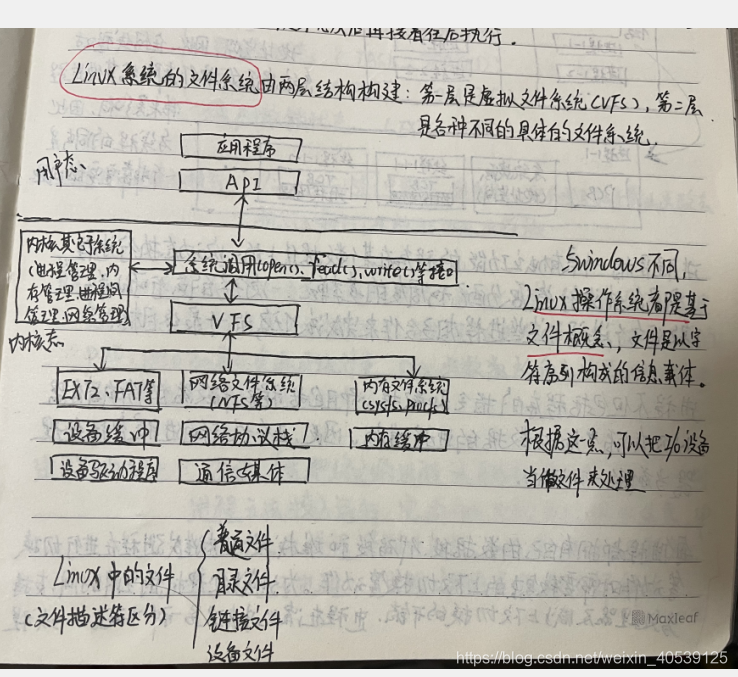 后再接着往后执行。
Linux系统的文件系统由两层结构构建：第一层是虚拟文件系统(VFS)，第二层
是各种不同的具体的文件系统.
应用程序
用户态
API
内核其它子系统
(进程管理、内
存管理、进程间
管理、网络管理)
系统调用(open()、read()、write()等接口
VFS
内核态
EXT2、FAT等
网络文件系统
(NFS等)
内存文件系统
(sysfs、procfs)
设备缓冲
网络协议栈
内存缓冲
设备驱动程序
通信媒体
与windows不同，
Linux操作系统都是基于
文件概念，文件是以字
符序列构成的信息载体。
根据这一点，可以把I/O设备
当做文件来处理
Linux中的文件
(文件描述符区分)
普通文件
目录文件
链接文件
设备文件
Maxleaf
https://blog.csdn.net/weixin_40539125